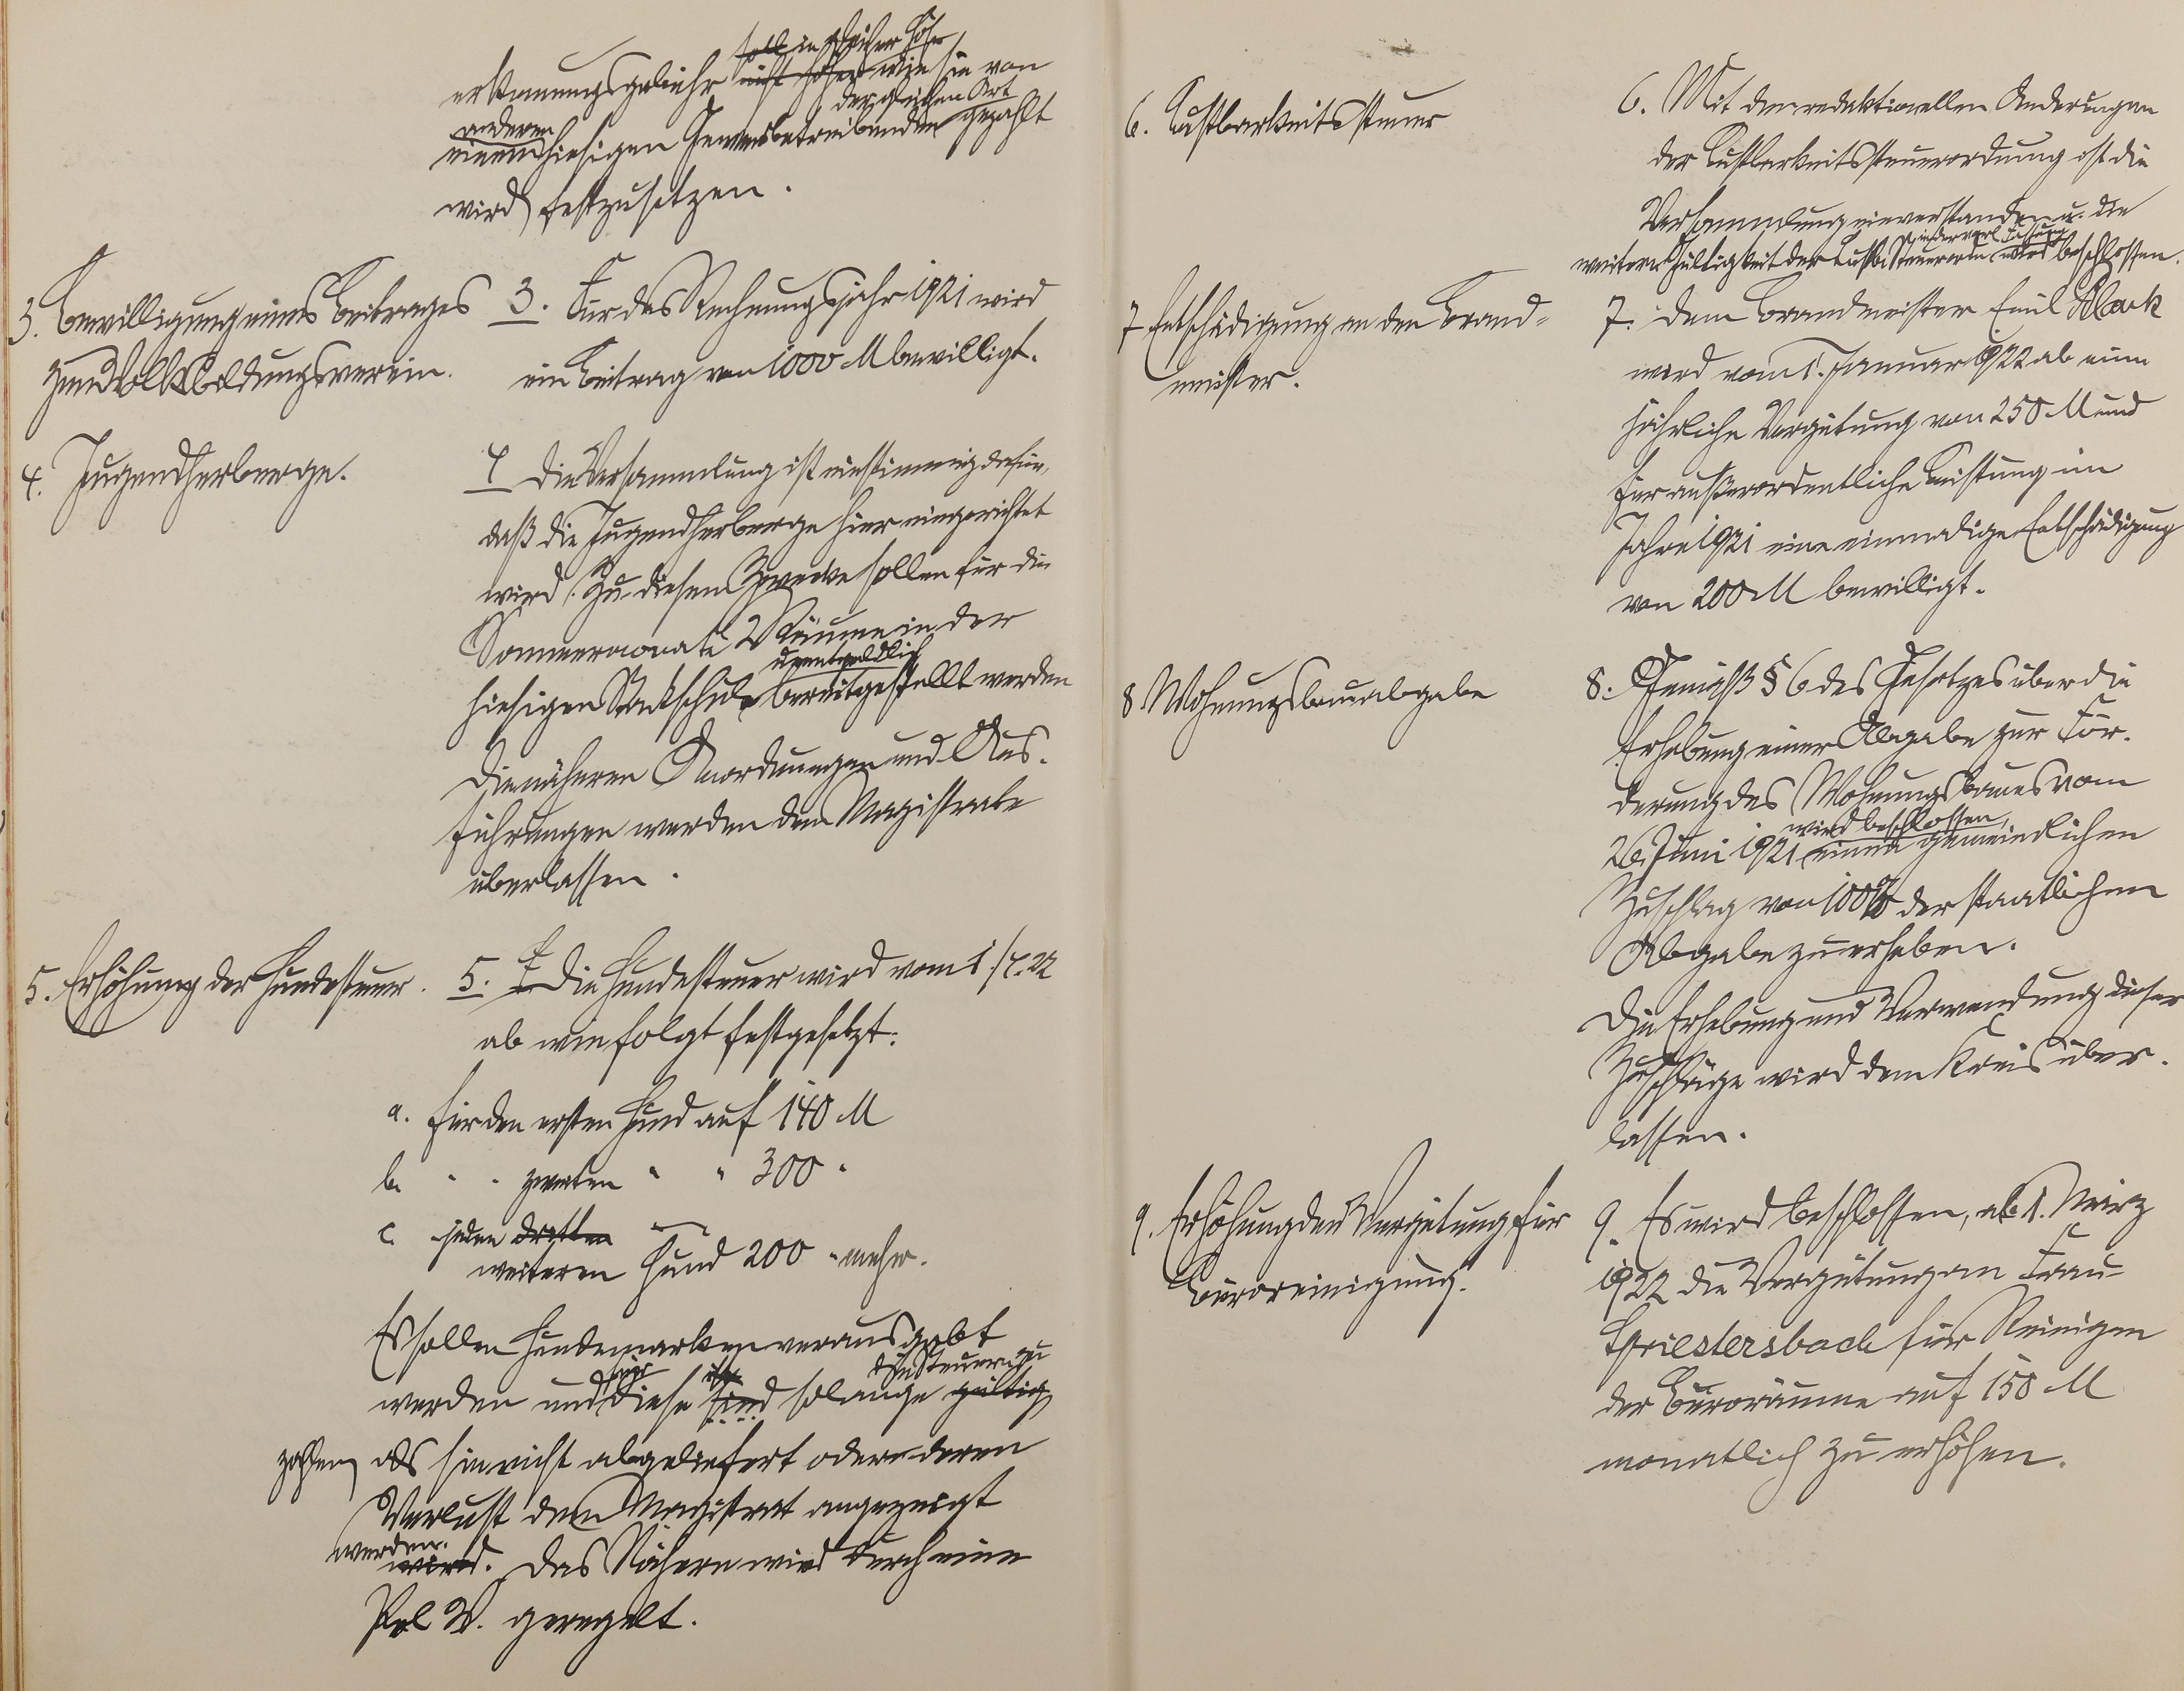 soll in gleicher Höhe
erkennungsgebühr nicht höher wie sie von
der gleichen Art
anderen
einem hiesigen Gewerbetreibenden gezahlt
wird festzusetzen.
3. Bewilligung eines Beitrages
zum Volksbildungsverein.
3. Für das Rechnungsjahr 1921 wird
ein Beitrag von 1000 M bewilligt.
4. Jugendherberge.
4 Die Versammlung ist einstimmig dafür,
daß die Jugendherberge hier eingerichtet
wird. Zu diesem Zwecke sollen für die
Sommermonate 2 Räume in der
unentgeldlich
hiesigen Stadtschule bereitgestellt werden
Die näheren Anordnungen und Aus-
führungen werden dem Magistrate
überlassen.
5. Erhöhung der Hundesteuer.
5. Die Hundesteuer wird vom 1./4.22
ab wie folgt festgesetzt:
a. für den ersten Hund auf 140 M
b. " " zweiten " " 300 "
c. jeden dritten
weiteren Hund 200 " mehr.
Es sollen Hundemarken verausgabt
für ist die Steuer zu
werden und diese sind solange gültig
zahlen als sie nicht abgeliefert oder deren
Verlust dem Magistrat angezeigt
werden.
wird. Das Nähere wird durch eine
Pol V. geregelt.
6. Lustbarkeitssteuer
6. Mit den redaktionellen Änderungen
der Lustbarkeitssteuerordnung ist die
Versammlung einverstanden u. die
in der vorl. Fassung
weitere Gültigkeit der Lustb. Steuerordn. wird beschlossen.
7 Entschädigung an den Brand-
meister.
7. Dem Brandmeister Emil Black
wird vom 1. Januar 1922 ab eine
jährliche Vergütung von 250 M und
für außerordentliche Leistung im
Jahre 1921 eine einmalige Entschädigung
von 200 M bewilligt.
8 Wohnungsbauabgabe
8. Gemäß § 6 des Gesetzes über die
Erhebung einer Abgabe zur För-
derung des Wohnungsbaues vom
wird beschlossen,
26. Juni 1921 einen gemeindlichen
Zuschlag von 100% der staatlichen
Abgabe zu erheben.
Die Erhebung und Verwendung dieser
Zuschläge wird dem Kreis über-
lassen.
9. Erhöhung der Vergütung für
Büroreinigung.
9. Es wird beschlossen, ab 1. März
1922 die Vergütung an Frau
Spriestersbach für Reinigen
der Büroräume auf 150 M
monatlich zu erhöhen.